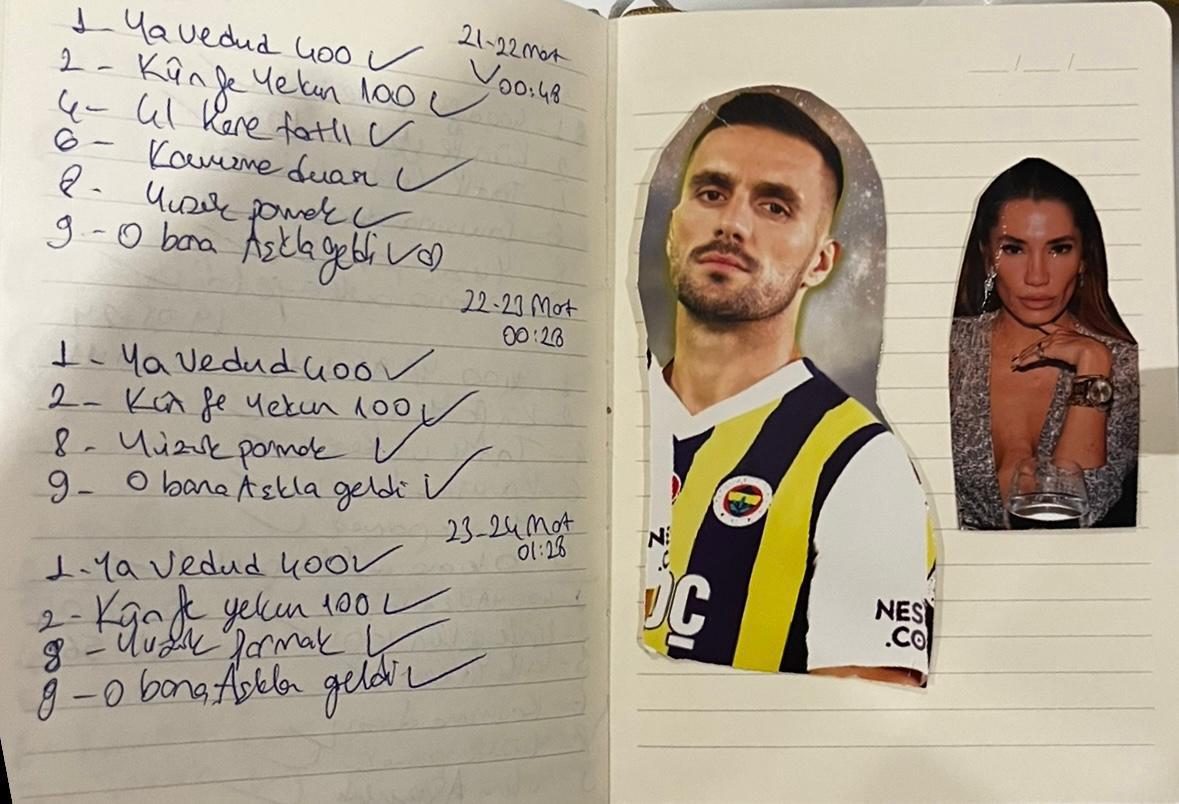 1- Ya Vedud 400 ✓
21-22 Mart
✓ 00:48
2- Kün fe Yekün 100 ✓
4- 41 kere tatlı ✓
6- Kavuşme duası ✓
8- Yüzük parmak ✓
9- O bana Aşkla geldi ✓
22-23 Mart
00:28
1- Ya Vedud 400 ✓
2- Kün fe Yekün 100 ✓
8- Yüzük parmak ✓
9- O bana Aşkla geldi ✓
23-24 Mart
01:28
1- Ya Vedud 400 ✓
2- Kün fe yekün 100 ✓
8- Yüzük parmak ✓
9- O bana Aşkla geldi ✓
NES
.CO